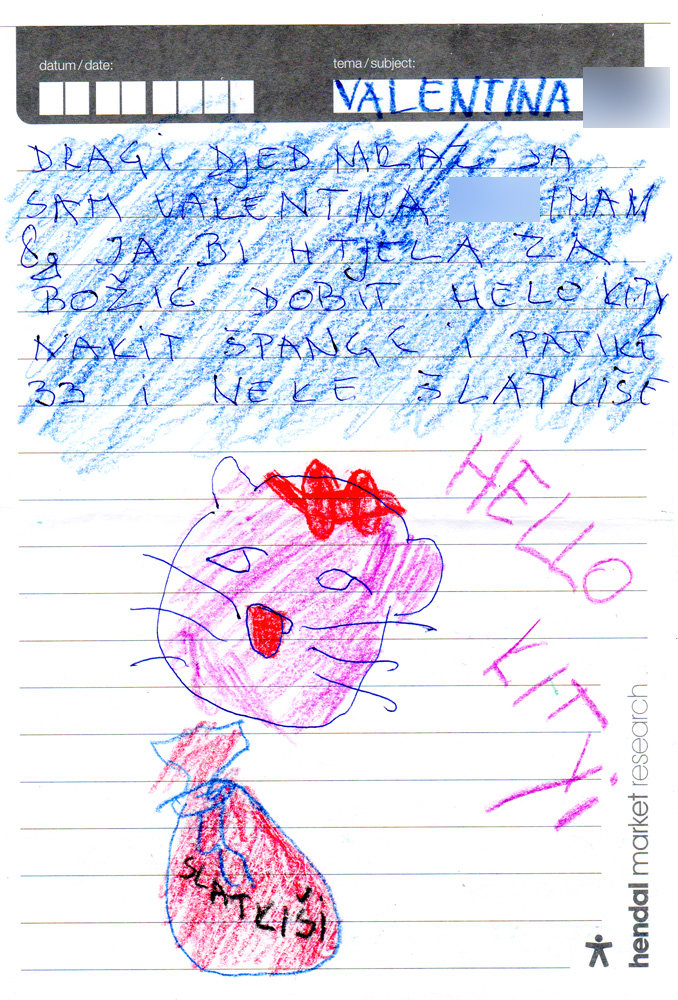 datum / date:
tema / subject:
VALENTINA
DRAGI DJED MRAZ JA
SAM VALENTINA IMAM
8g JA BI HTJELA ZA
BOŽIĆ DOBIT HELO KITY
NAKIT ŠPANGE I PATIKE
33 I NEKE SLATKIŠE
HELLO
KITY!
SLATKIŠI
hendal market research